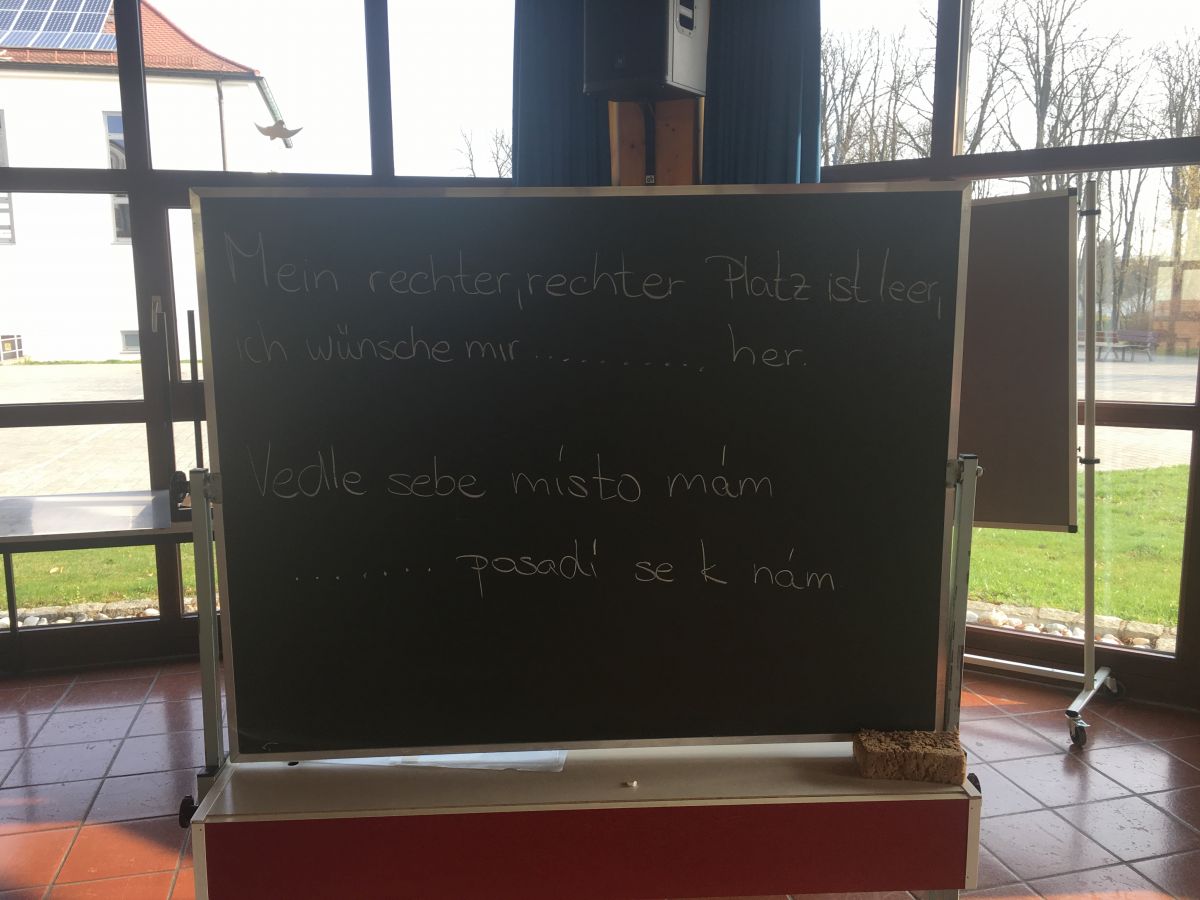 Mein rechter, rechter Platz ist leer,
ich wünsche mir .......... her.
Vedle sebe místo mám
........ posadí se k nám